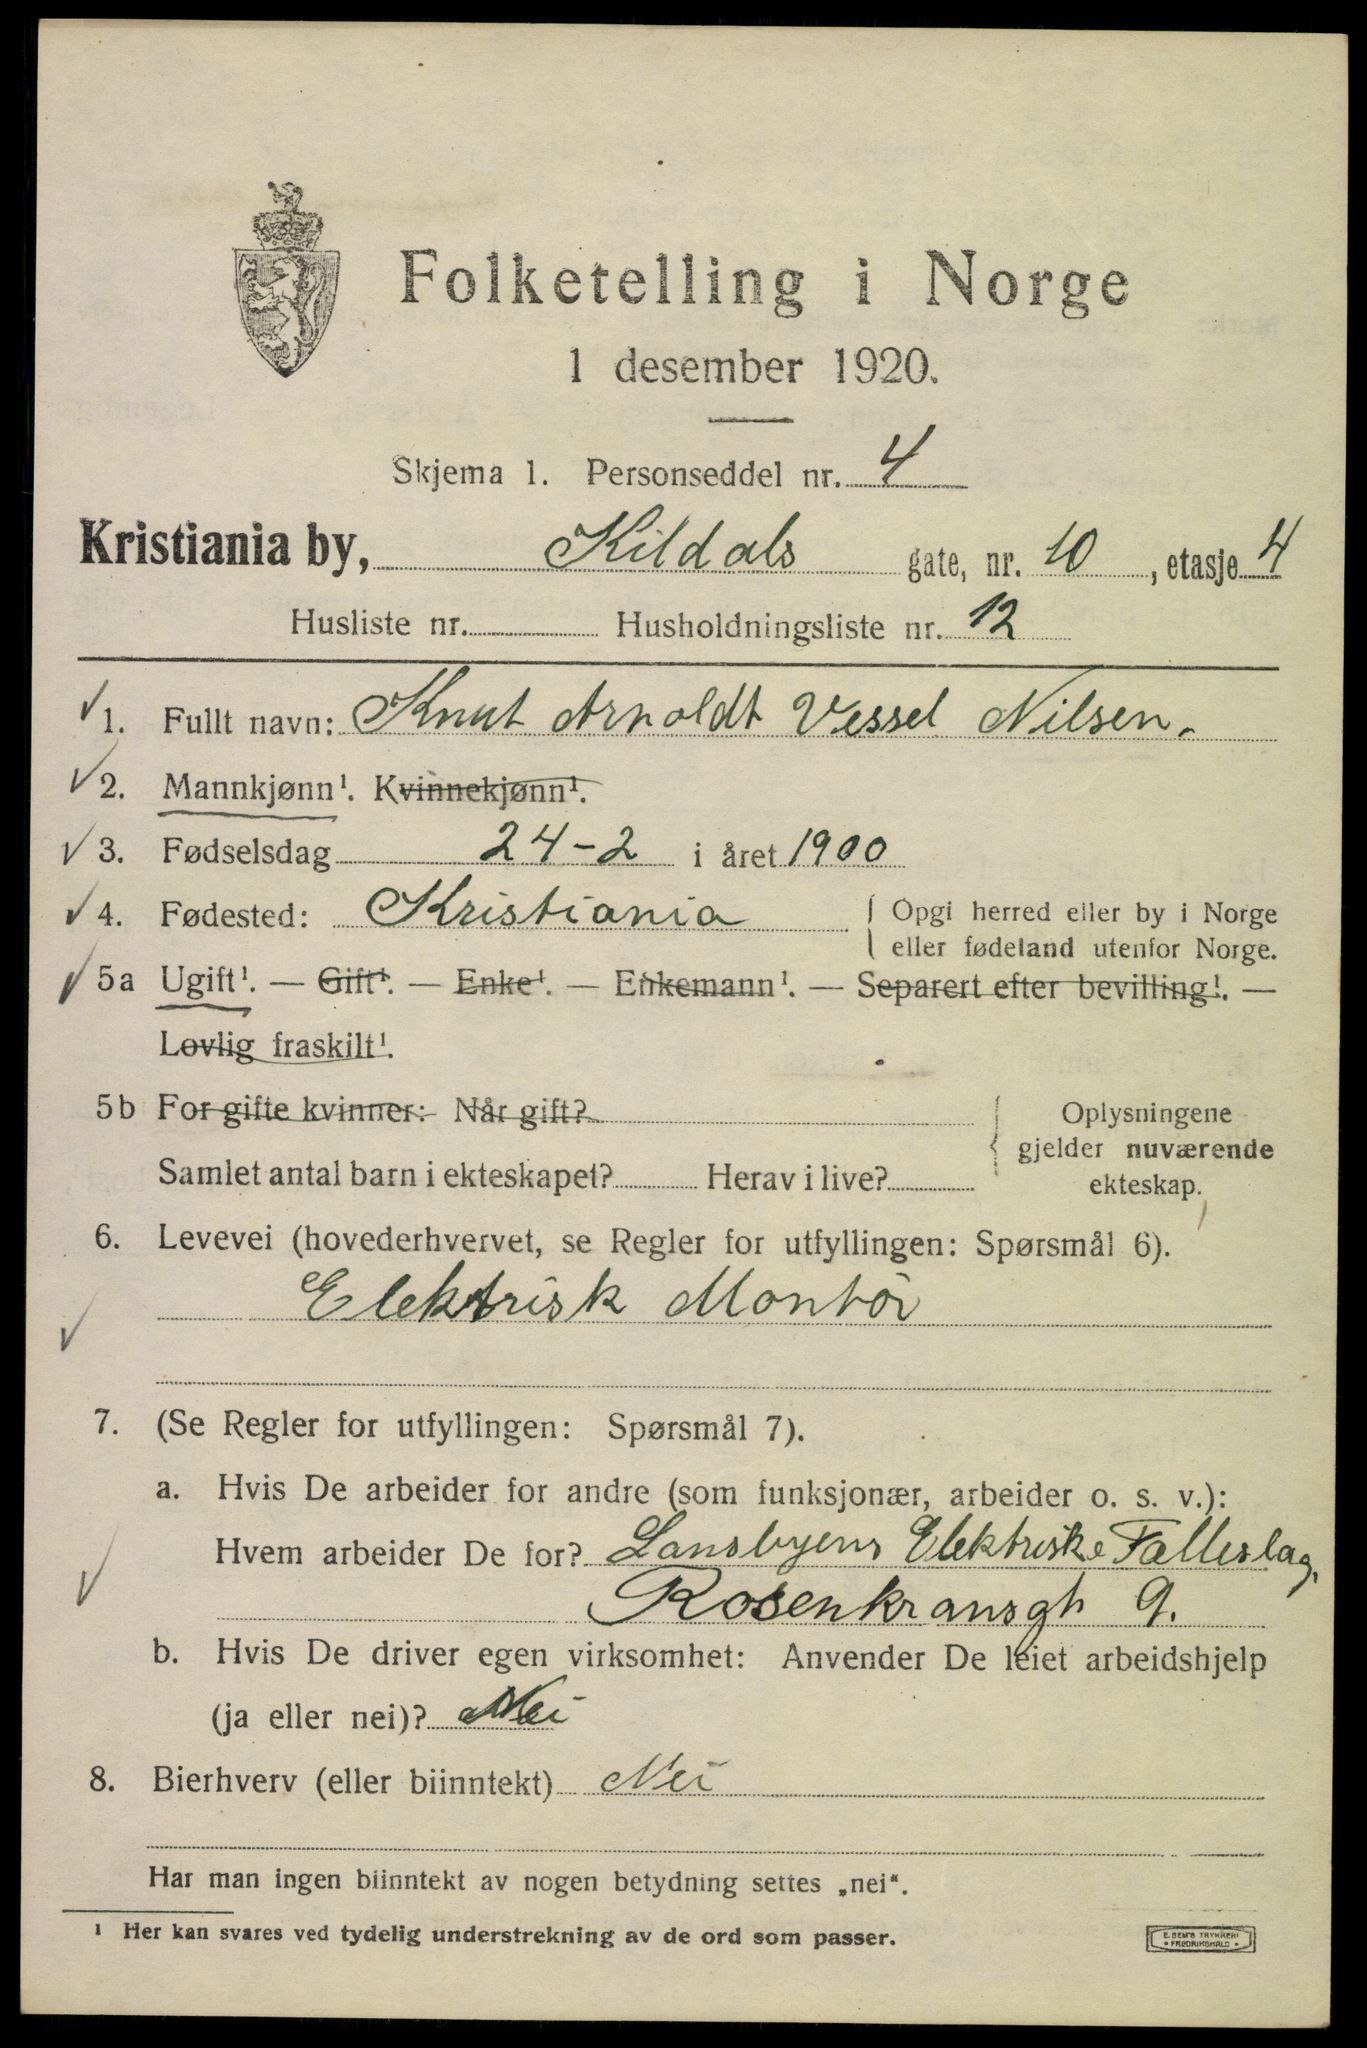 Folketelling i Norge
1 desember 1920.
Skjema 1. Personseddel nr. 4
Kristiania by, Kildals gate, nr. 10, etasje 4
Husliste nr. Husholdningsliste nr. 12
1. Fullt navn: Knut Arnoldt Vessel Nilsen.
2. Mannkjønn¹. Kvinnekjønn¹.
3. Fødselsdag 24-2 i året 1900
4. Fødested: Kristiania { Opgi herred eller by i Norge
eller fødeland utenfor Norge.
5a Ugift¹. — Gift¹. — Enke¹. — Enkemann¹. — Separert efter bevilling¹. —
Lovlig fraskilt¹.
5b For gifte kvinner: Når gift?
Samlet antal barn i ekteskapet? Herav i live?
{ Oplysningene
gjelder nuværende
ekteskap.
6. Levevei (hovederhvervet, se Regler for utfyllingen: Spørsmål 6).
Elektrisk Montør
7. (Se Regler for utfyllingen: Spørsmål 7).
a. Hvis De arbeider for andre (som funksjonær, arbeider o. s. v.):
Hvem arbeider De for? Lansbyens Elektriske Falleslag,
Rosenkransgt 9.
b. Hvis De driver egen virksomhet: Anvender De leiet arbeidshjelp
(ja eller nei)? Nei
8. Bierhverv (eller biinntekt) Nei
Har man ingen biinntekt av nogen betydning settes „nei“.
¹ Her kan svares ved tydelig understrekning av de ord som passer.
E. SEM'S TRYKKERI
• FREDRIKSHALD •